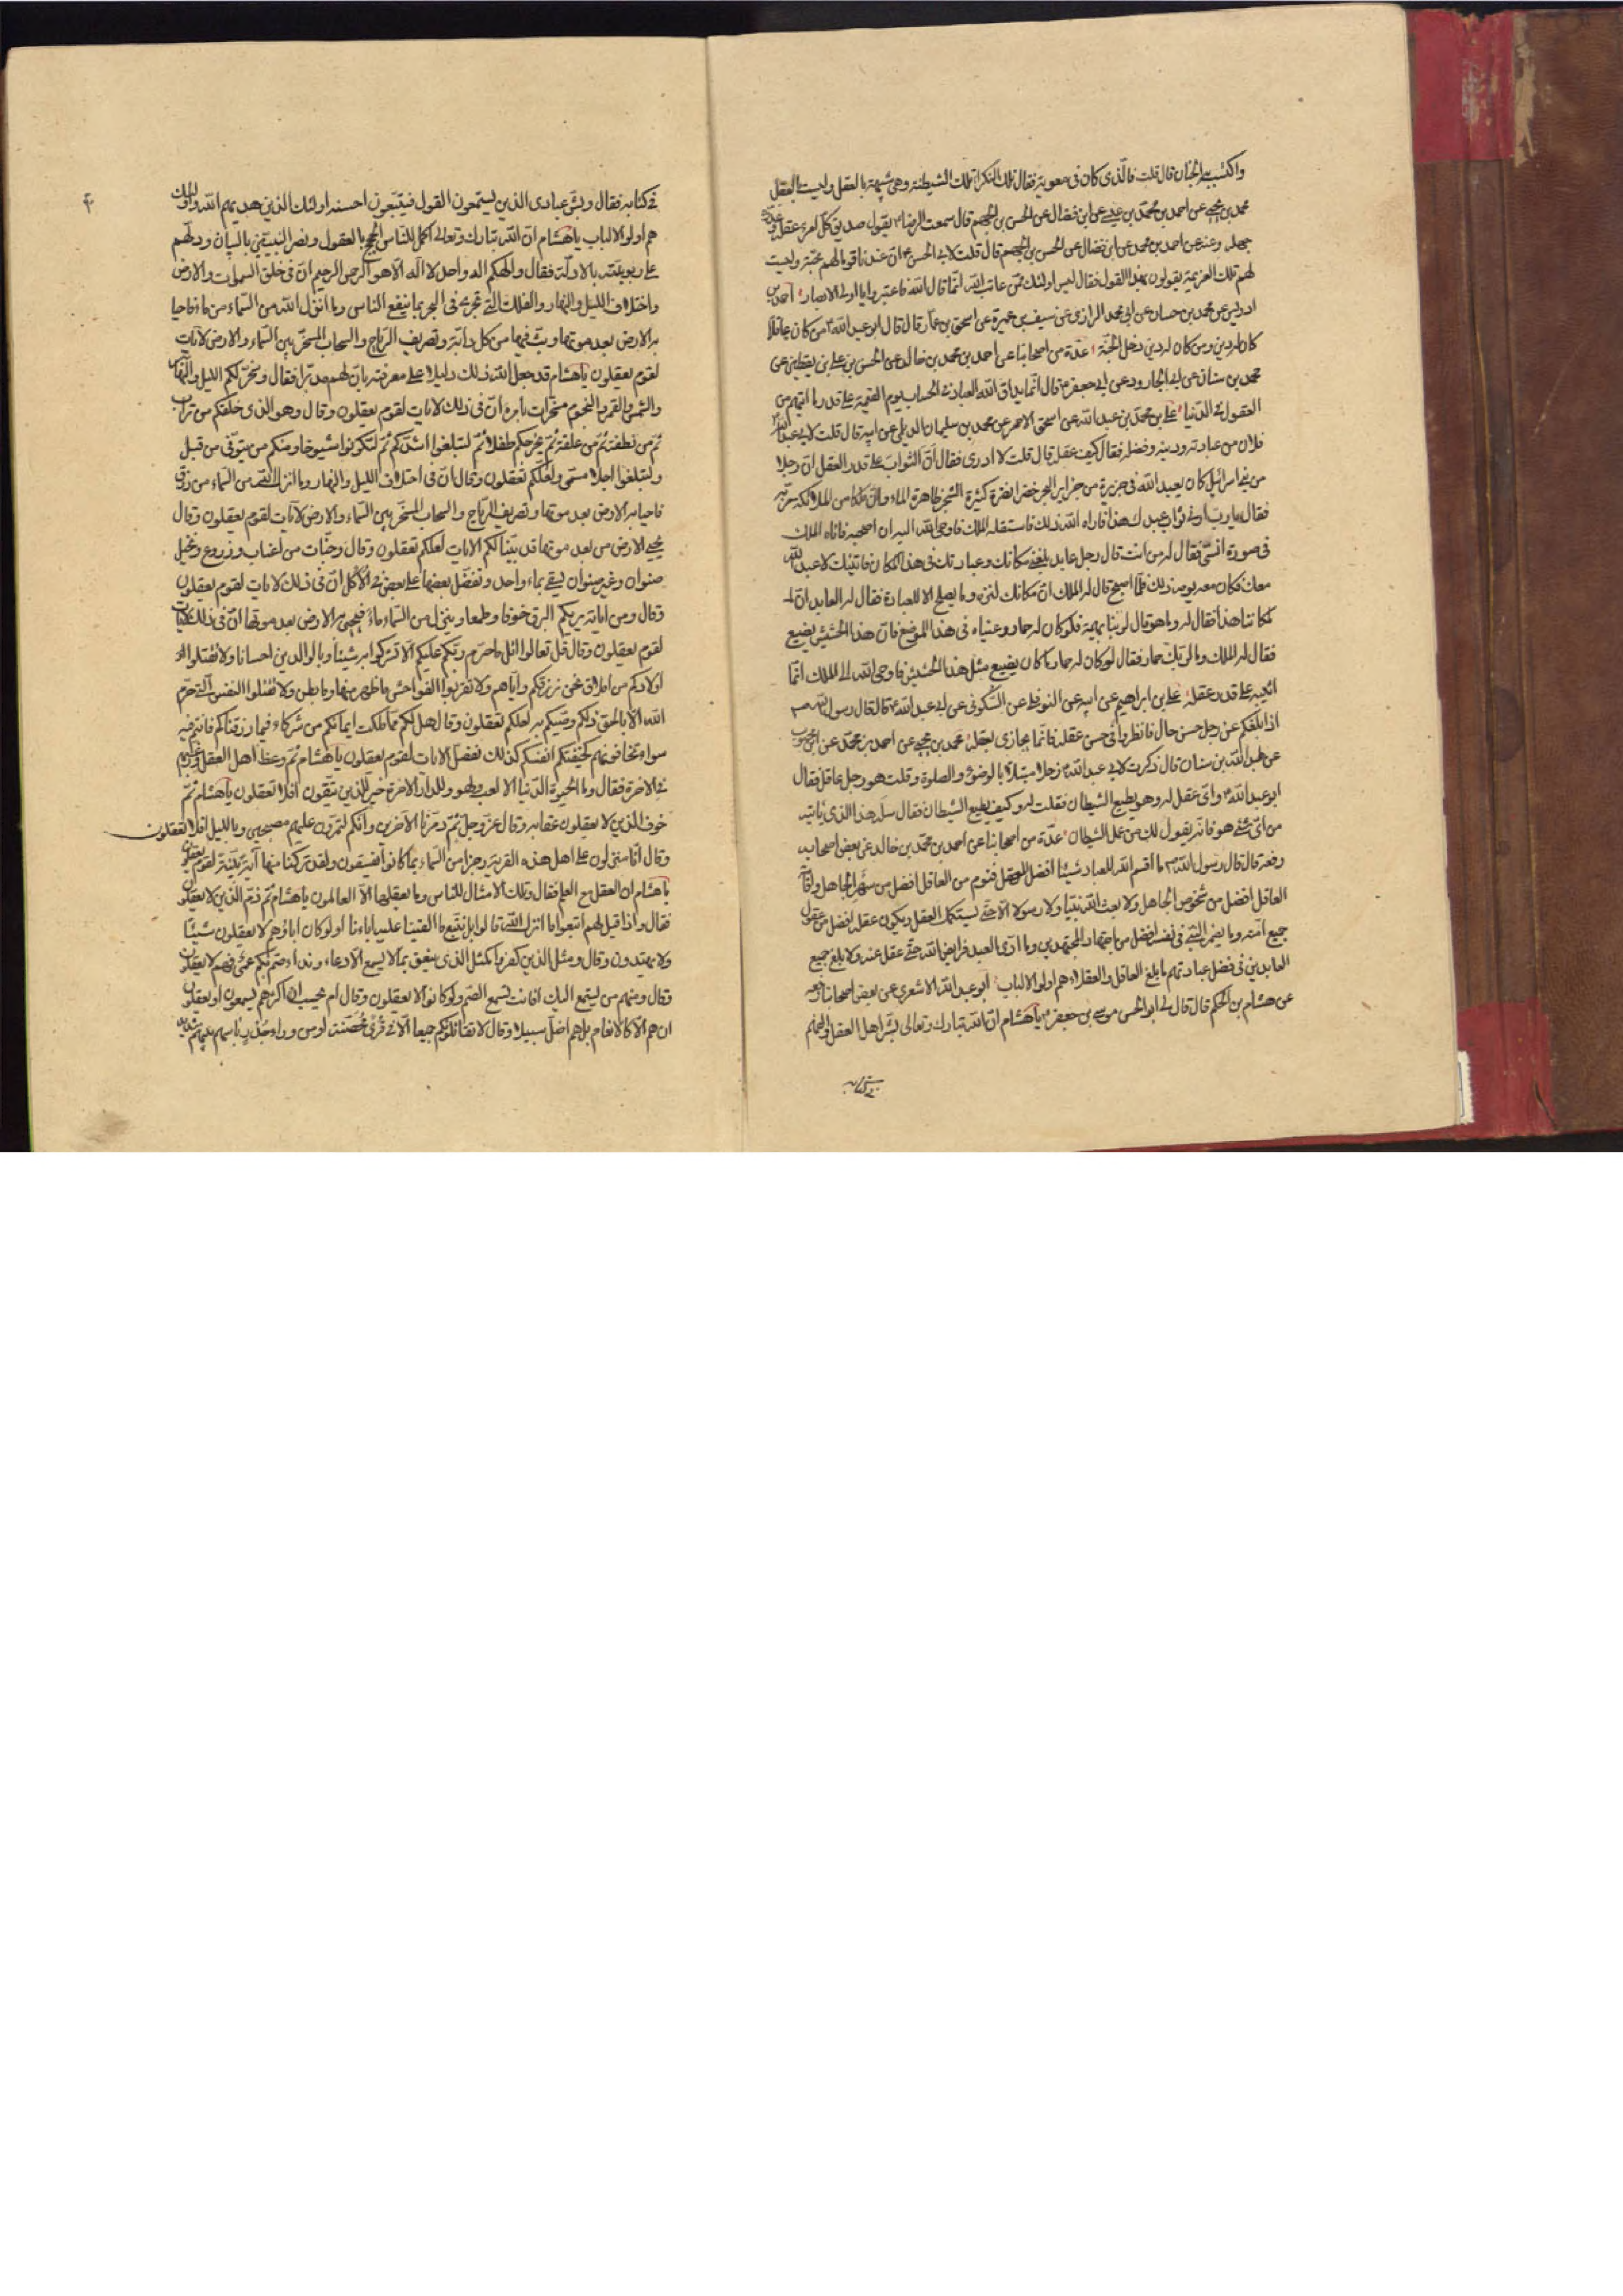 واكتسب به الجنان قال قلت فالذى كان فى معوية فقال تلك النكراء تلك الشيطنة وهى شبيهة بالعقل وليست بالعقل
محمد بن يحيى عن احمد بن محمد بن عيسى عن ابن فضال عن الحسن بن الجهم قال سمعت الرضا ع يقول صديق كل امرئ عقله وعدوه
جهله وعنه عن احمد بن محمد عن ابن فضال عن الحسن بن الجهم قال قلت لابى الحسن ع ان عندنا قوما لهم محبة وليست
لهم تلك العزيمة يقولون بهذا القول فقال ليس اولئك ممن عاتب الله انما قال الله فاعتبروا يا اولى الابصار احمد بن
ادريس عن محمد بن حسان عن ابى محمد الرازى عن سيف بن عميرة عن اسحق بن عمار قال قال ابو عبد الله ع من كان عاقلا
كان له دين ومن كان له دين دخل الجنة عدة من اصحابنا عن احمد بن محمد بن خالد عن الحسن بن على بن يقطين عن
محمد بن سنان عن ابى الجارود عن ابى جعفر ع قال انما يداق الله العباد فى الحساب يوم القيمة على قدر ما اتيهم من
العقول فى الدنيا على بن محمد بن عبد الله عن اسحق الاحمر عن محمد بن سليمان الديلمى عن ابيه قال قلت لابى عبد الله ع
فلان من عبادته ودينه وفضله فقال كيف عقله قال قلت لا ادرى فقال ان الثواب على قدر العقل ان رجلا
من بنى اسرائيل كان يعبد الله فى جزيرة من جزاير البحر خضراء نضرة كثيرة الشجر ظاهرة الماء وان ملكا من الملائكة مر به
فقال يا رب ارنى ثواب عبدك هذا فاراه الله ذلك فاستقله الملك فاوحى الله اليه ان اصحبه فاتاه الملك
فى صورة انسى فقال له من انت قال رجل عابد بلغنى مكانك وعبادتك فى هذا المكان فاتيتك لاعبد الله
معك فكان معه يومه ذلك فلما اصبح قال له الملك ان مكانك لنزه وما يصلح الا للعبادة فقال له العابد ان
لمكاننا هذا فقال له وما هو قال لربنا بهيمة فلو كان له حمار رعيناه فى هذا الموضع فان هذا الحشيش يضيع
فقال له الملك وما لربك حمار فقال لو كان له حمار ما كان يضيع مثل هذا الحشيش فاوحى الله الى الملك انما
اثيبه على قدر عقله على بن ابراهيم عن ابيه عن النوفلى عن السكونى عن ابى عبد الله ع قال قال رسول الله ص
اذا بلغكم عن رجل حسن حال فانظروا فى حسن عقله فانما يجازى بعقله محمد بن يحيى عن احمد بن محمد عن ابن محبوب
عن عبد الله بن سنان قال ذكرت لابى عبد الله ع رجلا مبتلا بالوضوء والصلوة وقلت هو رجل عاقل فقال
ابو عبد الله ع واى عقل له وهو يطيع الشيطان فقلت له وكيف يطيع الشيطان فقال سله هذا الذى ياتيه
من اى شئ هو فانه يقول لك من عمل الشيطان عدة من اصحابنا عن احمد بن محمد بن خالد عن بعض اصحابه
رفعه قال قال رسول الله ص ما اقسم الله للعباد شيئا افضل من العقل فنوم من العاقل افضل من سهر الجاهل واقامة
العاقل افضل من شخوص الجاهل ولا بعث الله نبيا ولا رسولا الا حتى يستكمل العقل ويكون عقله افضل من عقول
جميع امته وما يضمر النبى فى نفسه افضل من اجتهاد المجتهدين وما ادى العبد فرايض الله حتى عقل عنه ولا بلغ جميع
العابدين فى فضل عبادتهم ما بلغ العاقل والعقلاء هم اولوا الالباب ابو عبد الله الاشعرى عن بعض اصحابنا رفعه
عن هشام بن الحكم قال قال لى ابو الحسن موسى بن جعفر ع يا هشام ان الله تبارك وتعالى بشر اهل العقل والفهم
فى كتابه
۴
فى كتابه فقال وبشر عبادى الذين يستمعون القول فيتبعون احسنه اولئك الذين هديهم الله واولئك
هم اولوا الالباب يا هشام ان الله تبارك وتعالى اكمل للناس الحجج بالعقول ونصر النبيين بالبيان ودلهم
على ربوبيته بالادلة فقال والهكم اله واحد لا اله الا هو الرحمن الرحيم ان فى خلق السموات والارض
واختلاف الليل والنهار والفلك التى تجرى فى البحر بما ينفع الناس وما انزل الله من السماء من ماء فاحيا
به الارض بعد موتها وبث فيها من كل دابة وتصريف الرياح والسحاب المسخر بين السماء والارض لايات
لقوم يعقلون يا هشام قد جعل الله ذلك دليلا على معرفته بان لهم مدبرا فقال وسخر لكم الليل والنهار
والشمس والقمر والنجوم مسخرات بامره ان فى ذلك لايات لقوم يعقلون وقال وهو الذى خلقكم من تراب
ثم من نطفة ثم من علقة ثم يخرجكم طفلا ثم لتبلغوا اشدكم ثم لتكونوا شيوخا ومنكم من يتوفى من قبل
ولتبلغوا اجلا مسمى ولعلكم تعقلون وقال ان فى اختلاف الليل والنهار وما انزل الله من السماء من رزق
فاحيا به الارض بعد موتها وتصريف الرياح والسحاب المسخر بين السماء والارض لايات لقوم يعقلون وقال
يحيى الارض من بعد موتها قد بينا لكم الايات لعلكم تعقلون وقال وجنات من اعناب وزروع ونخيل
صنوان وغير صنوان يسقى بماء واحد ونفضل بعضها على بعض فى الاكل ان فى ذلك لايات لقوم يعقلون
وقال ومن اياته يريكم البرق خوفا وطمعا وينزل من السماء ماء فيحيى به الارض بعد موتها ان فى ذلك لايات
لقوم يعقلون وقال قل تعالوا اتل ما حرم ربكم عليكم الا تشركوا به شيئا وبالوالدين احسانا ولا تقتلوا
اولادكم من املاق نحن نرزقكم واياهم ولا تقربوا الفواحش ما ظهر منها وما بطن ولا تقتلوا النفس التى حرم
الله الا بالحق ذلكم وصيكم به لعلكم تعقلون وقال هل لكم مما ملكت ايمانكم من شركاء فيما رزقناكم فانتم فيه
سواء تخافونهم كخيفتكم انفسكم كذلك نفصل الايات لقوم يعقلون يا هشام ثم وعظ اهل العقل ورغبهم
فى الاخرة فقال وما الحيوة الدنيا الا لعب ولهو وللدار الاخرة خير للذين يتقون افلا تعقلون يا هشام ثم
خوف الذين لا يعقلون عقابه وقال عز وجل ثم دمرنا الاخرين وانكم لتمرون عليهم مصبحين وبالليل افلا تعقلون
وقال انا منزلون على اهل هذه القرية رجزا من السماء بما كانوا يفسقون ولقد تركنا منها آية بينة لقوم يعقلون
يا هشام ان العقل مع العلم فقال وتلك الامثال للناس وما يعقلها الا العالمون يا هشام ثم ذم الذين لا يعقلون
فقال واذا قيل لهم اتبعوا ما انزل الله قالوا بل نتبع ما الفينا عليه اباءنا اولو كان اباؤهم لا يعقلون شيئا
ولا يهتدون وقال ومثل الذين كفروا كمثل الذى ينعق بما لا يسمع الا دعاء ونداء صم بكم عمى فهم لا يعقلون
وقال ومنهم من يستمع اليك افانت تسمع الصم ولو كانوا لا يعقلون وقال ام تحسب ان اكثرهم يسمعون او يعقلون
ان هم الا كالانعام بل هم اضل سبيلا وقال لا يقاتلونكم جميعا الا فى قرى محصنة او من وراء جدر باسهم بينهم شديد